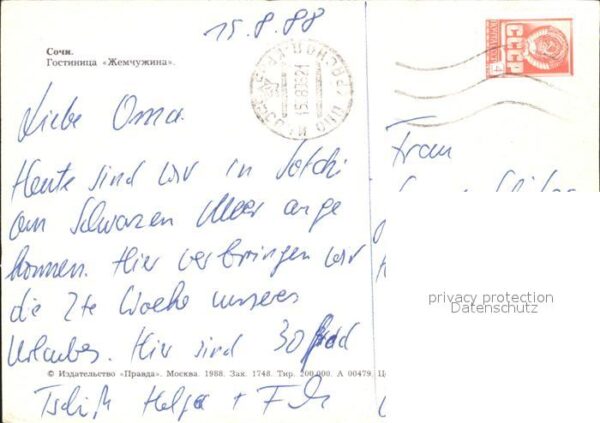 15.8.88
Сочи.
Гостиница «Жемчужина».
СССР
4
Liebe Oma.
Heute sind wir in Sotchi
am Schwarzen Meer ange
kommen. Hier verbringen wir
die 2te Woche unseres
Urlaubes. Hier sind 30 Grad
© Издательство «Правда». Москва. 1988. Зак. 1748. Тир. 200.000. А 00479.
Tschüß Helga +
Frau
privacy protection
Datenschutz